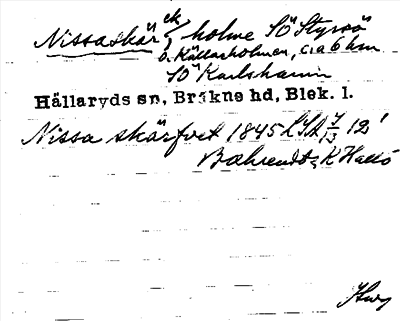 Nissaskär ek holme SÖ Styrsö
o. Källarholmen, c:a 6 km
SÖ Karlshamn
Hällaryds sn, Bräkne hd, Blek. l.
Nissa skärfvet 1845 LSA 12
K Hallö